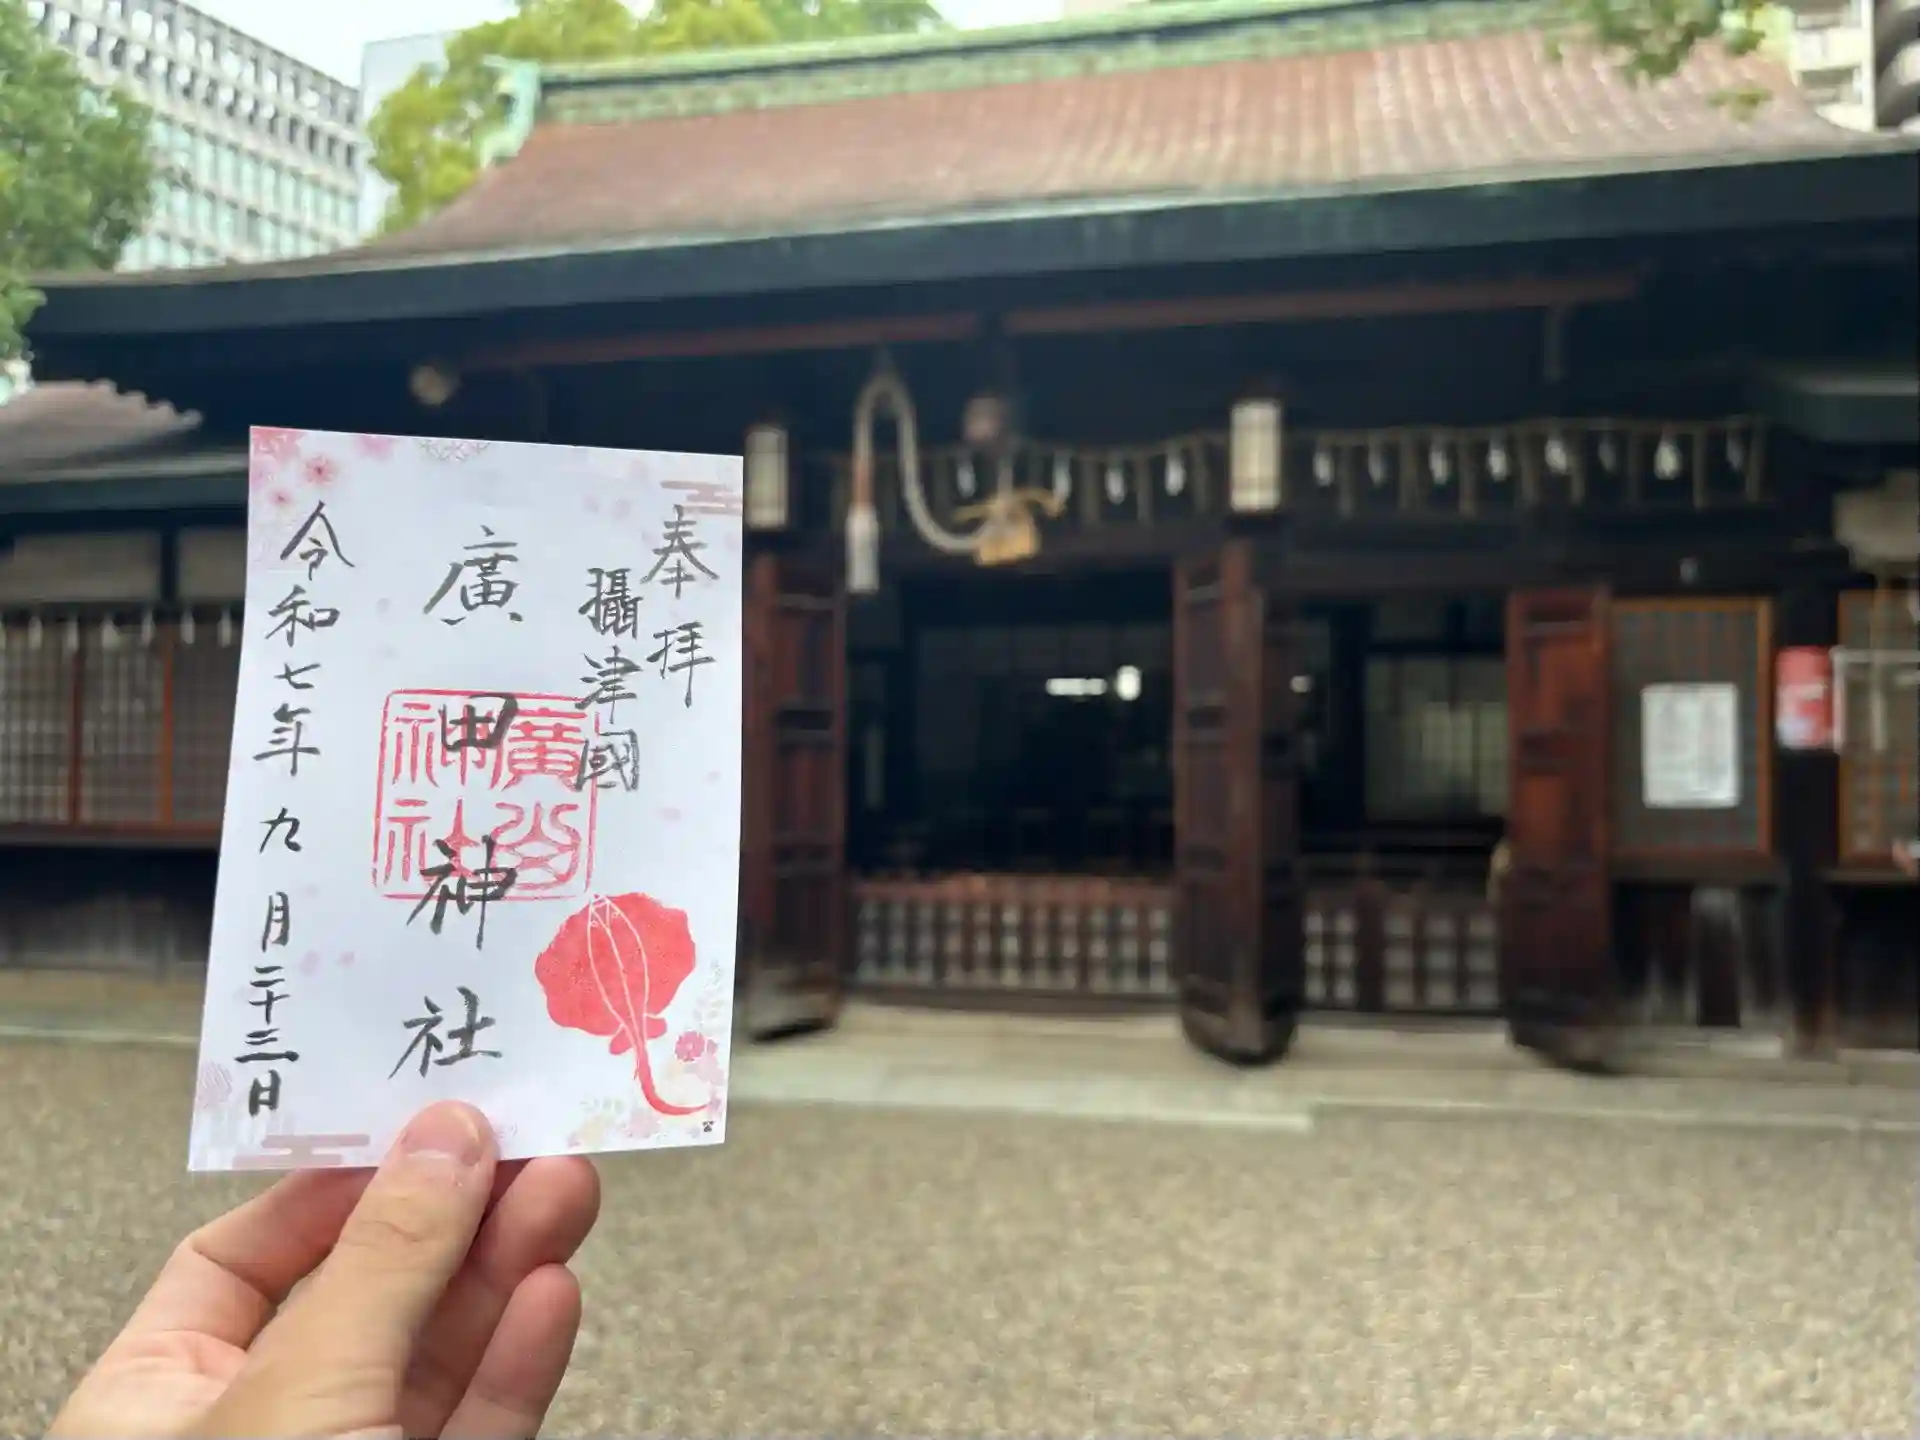 奉拝
攝津國
廣田神社
廣田
神社
令和七年九月二十三日